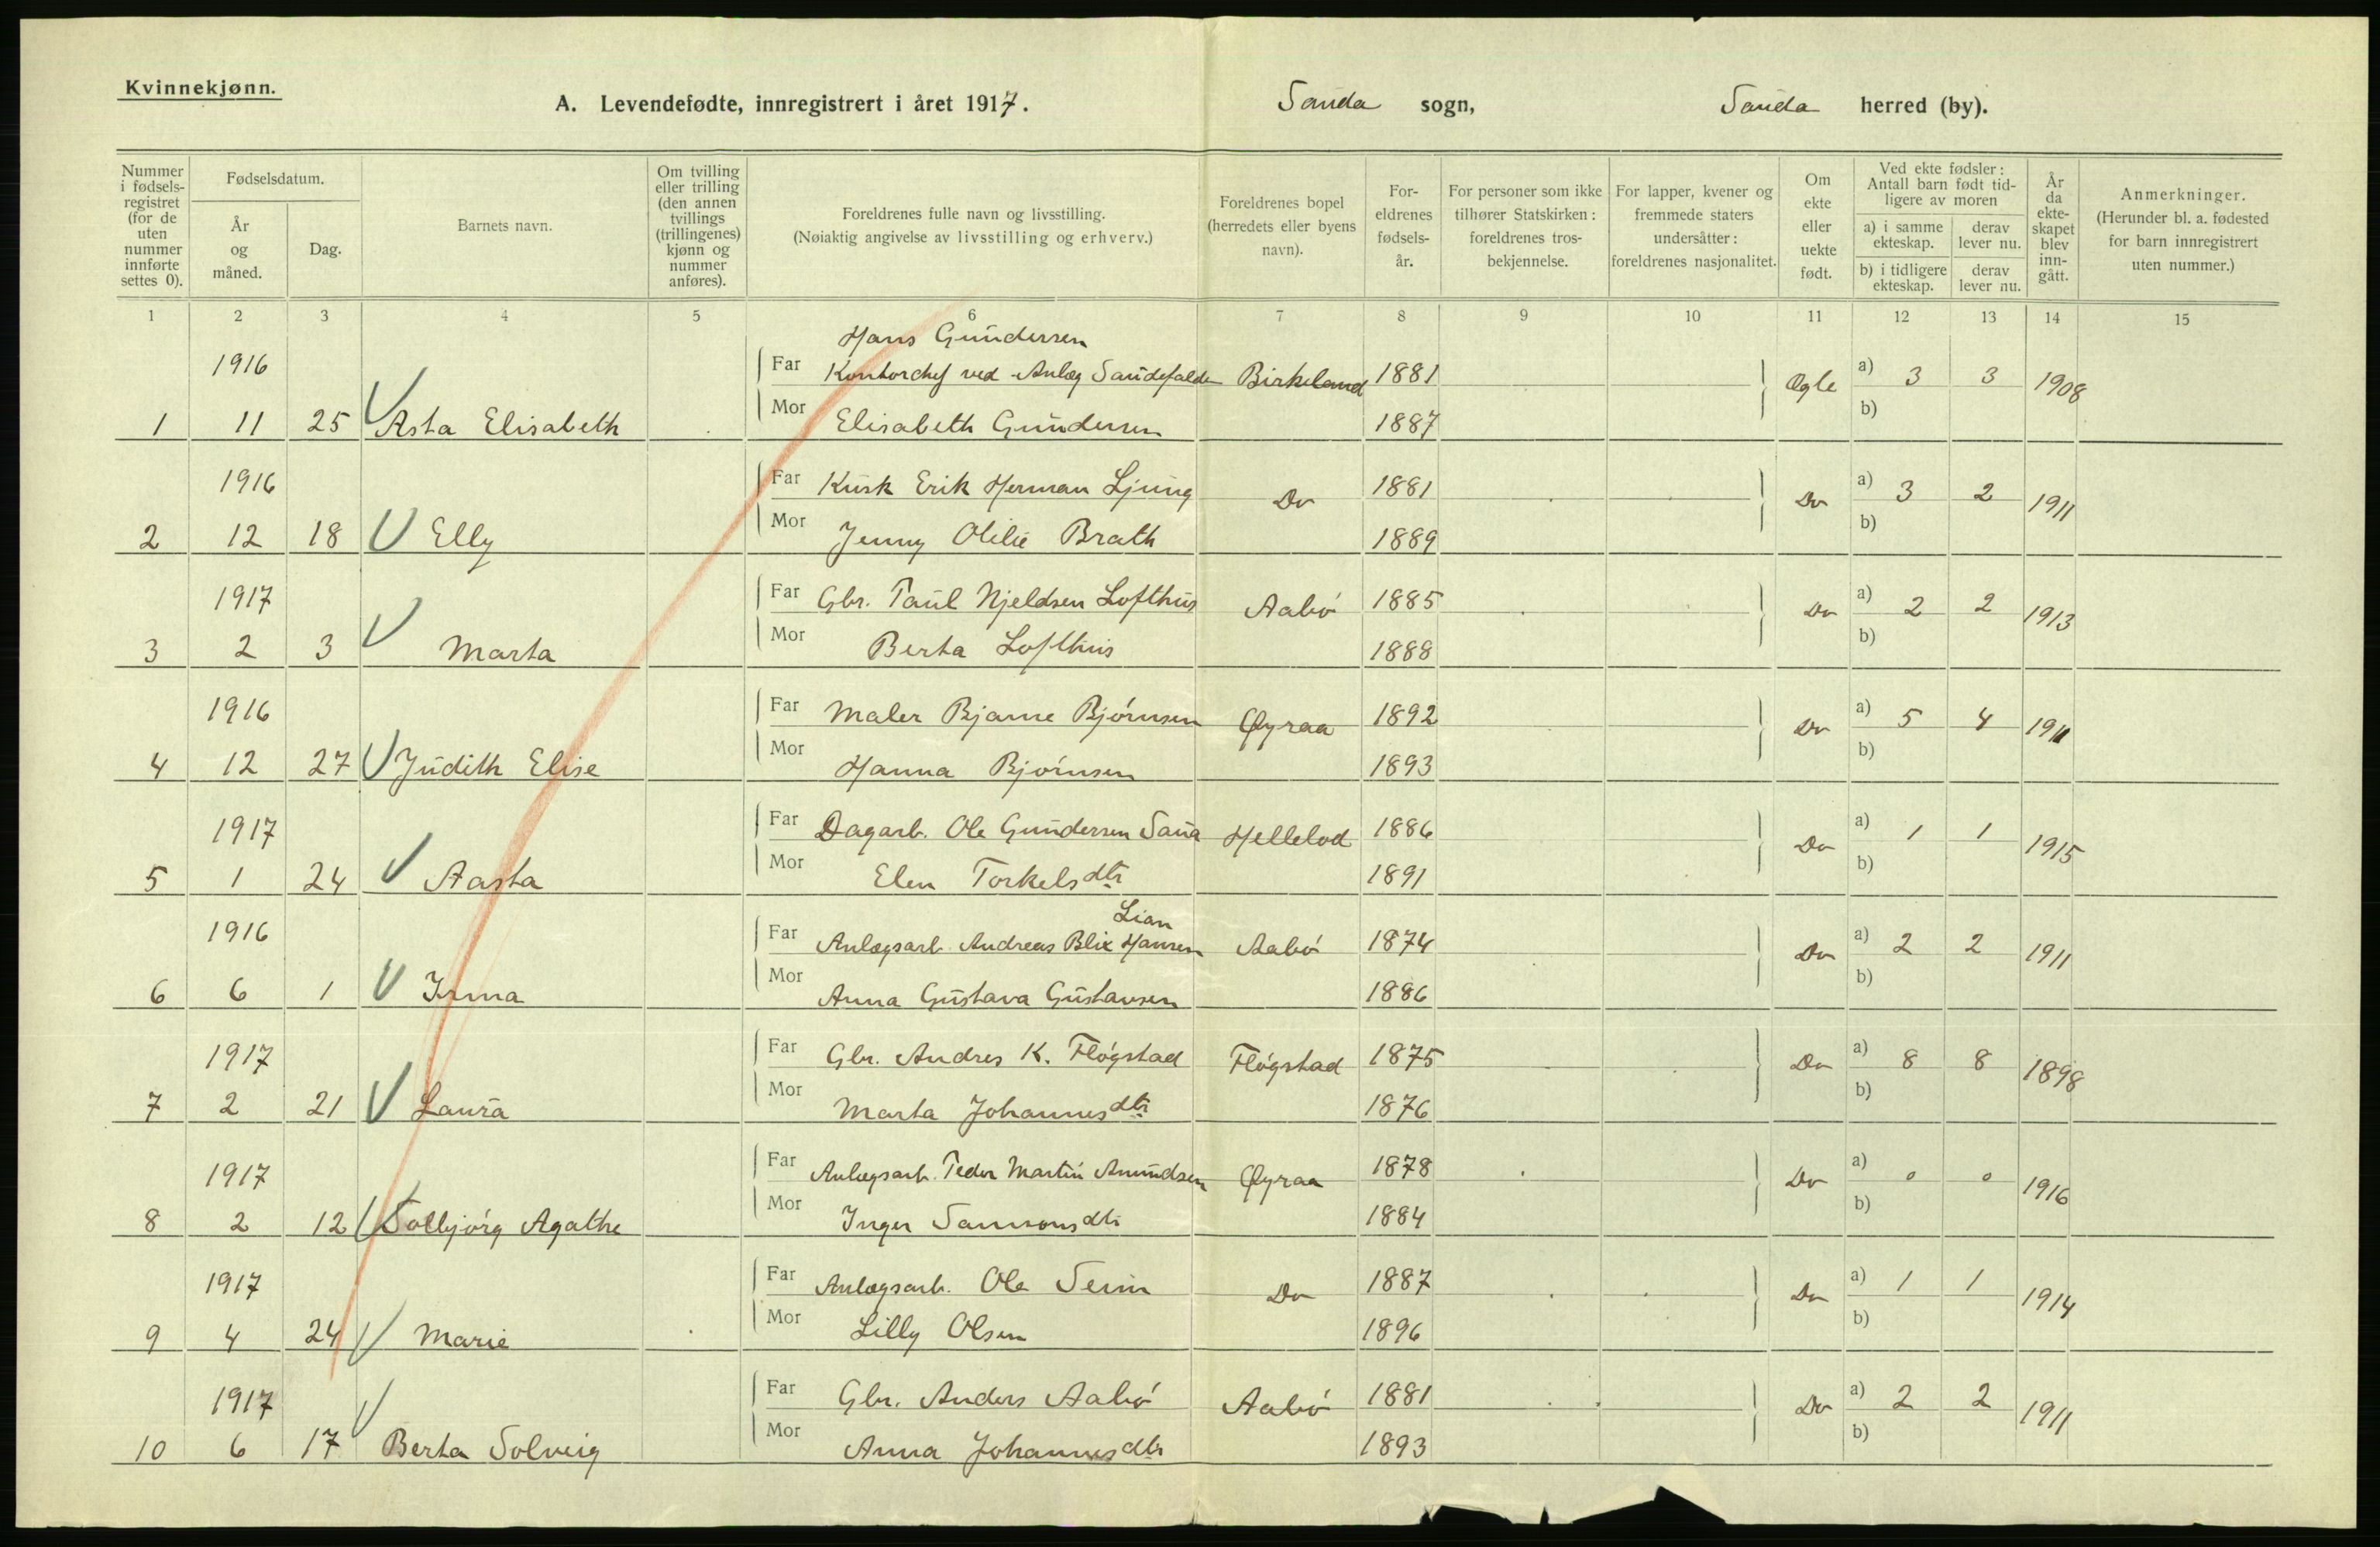 Kvinnekjønn.
A. Levendefødte, innregistrert i året 1917. Sauda sogn, Sauda herred (by).
Nummer i fødselsregistret (for de uten nummer innførte settes 0).
Fødselsdatum.
År og måned.
Dag.
Barnets navn.
Om tvilling eller trilling (den annen tvillings (trillingenes) kjønn og nummer anføres).
Foreldrenes fulle navn og livsstilling.
(Nøiaktig angivelse av livsstilling og erhverv.)
Foreldrenes bopel (herredets eller byens navn).
Foreldrenes fødselsår.
For personer som ikke tilhører Statskirken: foreldrenes trosbekjennelse.
For lapper, kvener og fremmede staters undersåtter: foreldrenes nasjonalitet.
Om ekte eller uekte født.
Ved ekte fødsler: Antall barn født tidligere av moren
a) i samme ekteskap.
derav lever nu.
b) i tidligere ekteskap.
derav lever nu.
År da ekteskapet blev inngått.
Anmerkninger.
(Herunder bl. a. fødested for barn innregistrert uten nummer.)
1 2 3 4 5 6 7 8 9 10 11 12 13 14 15
Hans Gundersen
1916 Far Kontorchef ved Anlæg Saudefalde Birkeland 1881 Ægte a) 3 3 1908
1 11 25 Asta Elisabeth Mor Elisabeth Gundersen 1887 b)
1916 Far Kusk Erik Herman Ljung Do 1881 Do a) 3 2 1911
2 12 18 Elly Mor Jenny Olilie Brath 1889 b)
1917 Far Gbr. Paul Njeldsen Lofthus Aabø 1885 Do a) 2 2 1913
3 2 3 Marta Mor Berta Lofthus 1888 b)
1916 Far Maler Bjarne Bjørnsen Øyraa 1892 Do a) 5 4 1911
4 12 27 Judith Elise Mor Hanna Bjørnsen 1893 b)
1917 Far Dagarb. Ole Gundersen Saua Hellelod 1886 Do a) 1 1 1915
5 1 24 Aasta Mor Elen Torkelsdtr 1891 b)
Lian
1916 Far Anlægsarb. Andreas Blix Hansen Aabø 1874 Do a) 2 2 1911
6 6 1 Irma Mor Anna Gustava Gustavsen 1886 b)
1917 Far Gbr. Andres K. Fløgstad Fløgstad 1875 Do a) 8 8 1898
7 2 21 Laura Mor Marta Johannesdtr 1876 b)
1917 Far Anlægsarb. Peder Martin Amundsen Øyraa 1878 Do a) 0 0 1916
8 2 12 Solbjørg Agathe Mor Inger Samsonsdtr 1884 b)
1917 Far Anlægsarb. Ole Seim Do 1887 Do a) 1 1 1914
9 4 24 Marie Mor Lilly Olsen 1896 b)
1917 Far Gbr. Anders Aabø Aabø 1881 Do a) 2 2 1911
10 6 17 Berta Solveig Mor Anna Johannesdtr 1893 b)